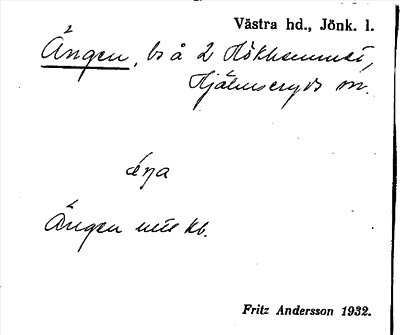 Västra hd., Jönk. l.
Ängen, ls å 2 Hökhemmet,
Hjälmseryds sn.
äŋa
Ängen utt kb.
Fritz Andersson 1932.